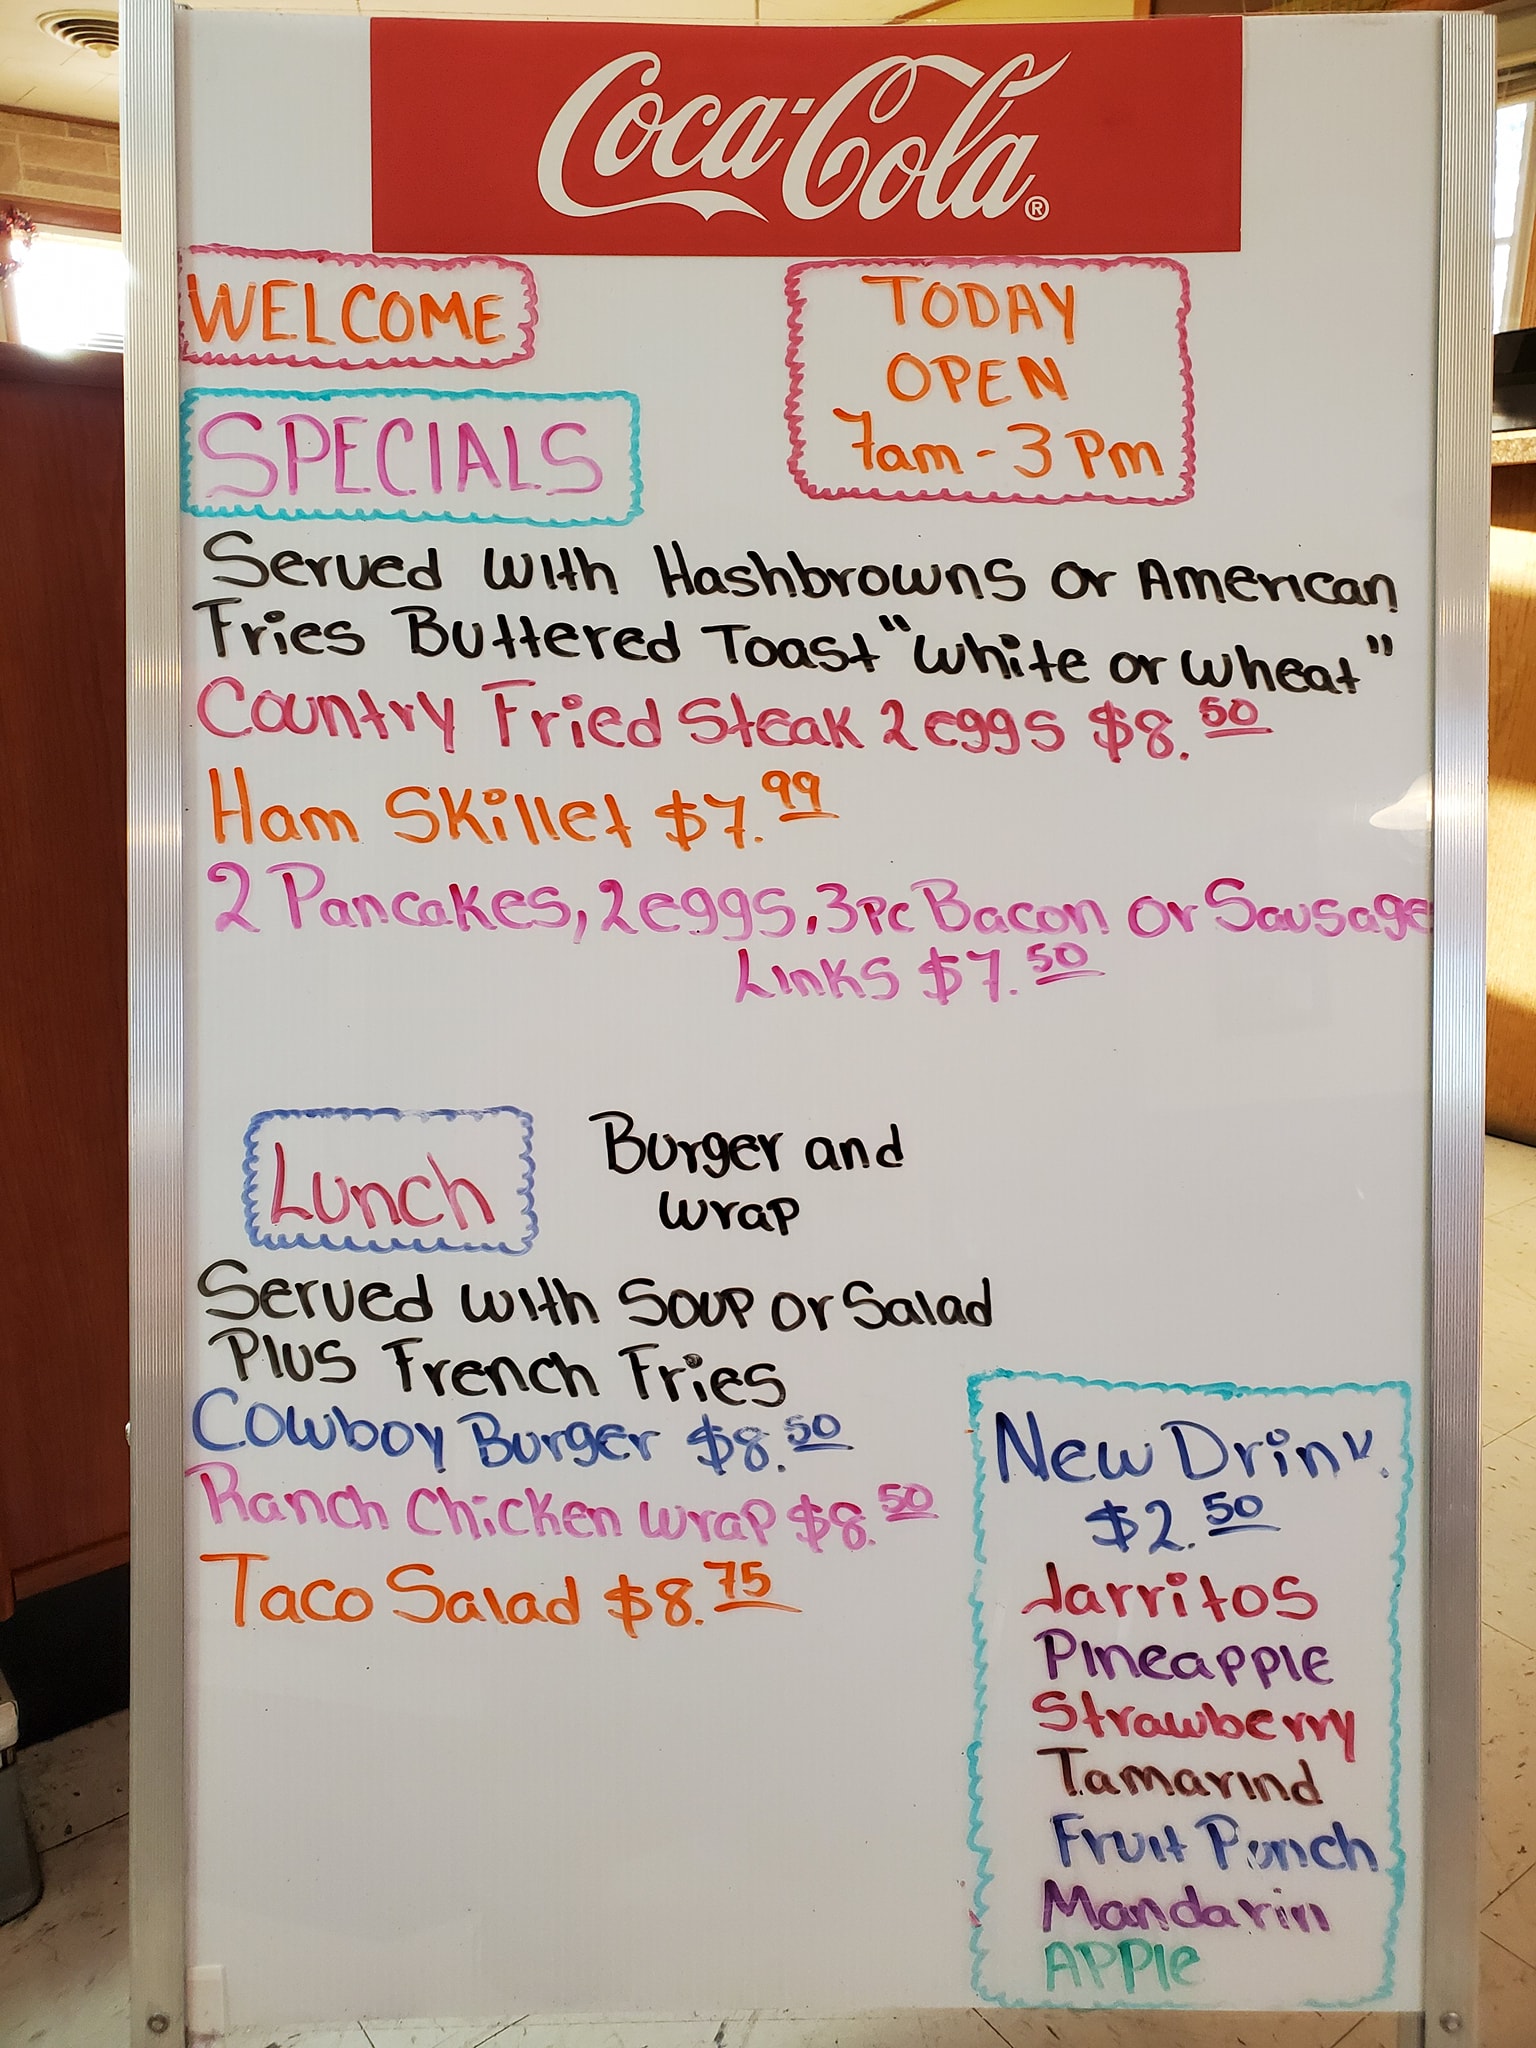 Coca-Cola®
WELCOME
TODAY
OPEN
7am - 3 Pm
SPECIALS
Served with Hashbrowns or American
Fries Buttered Toast "White or Wheat"
Country Fried Steak 2 eggs $8.50
Ham Skillet $7.99
2 Pancakes, 2 eggs, 3pc Bacon or Sausage
Links $7.50
Lunch
Burger and
wrap
Served with Soup or Salad
Plus French Fries
Cowboy Burger $8.50
Ranch Chicken wrap $8.50
Taco Salad $8.75
New Drink.
$2.50
Jarritos
Pineapple
Strawberry
Tamarind
Fruit Punch
Mandarin
APPle